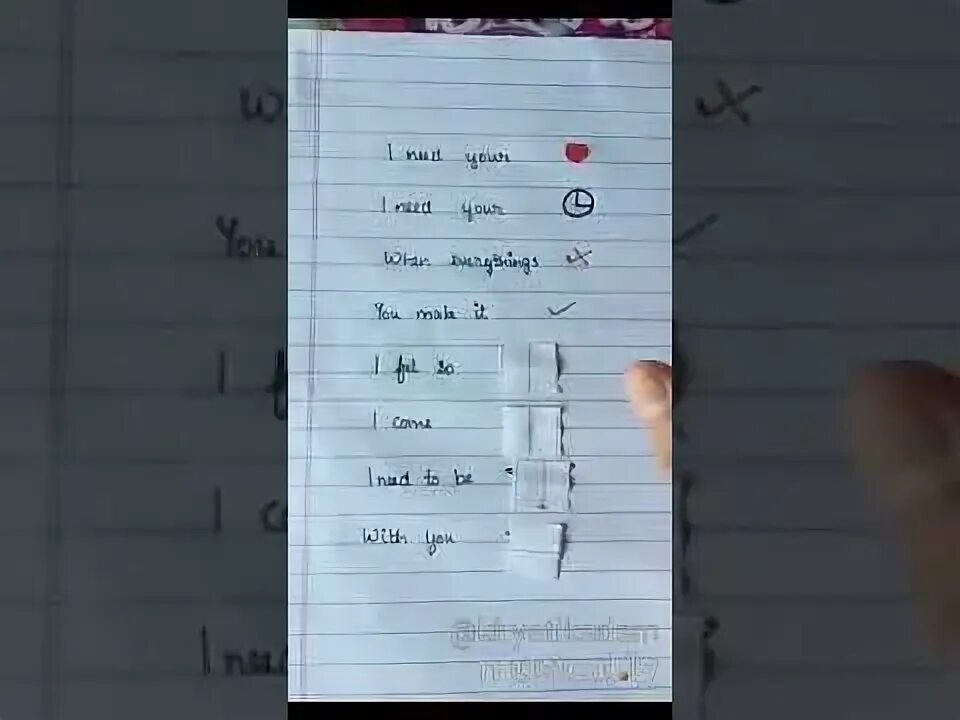 I need your
I need your
When everythings
You make it
I fel so
I cane
I need to be
With you